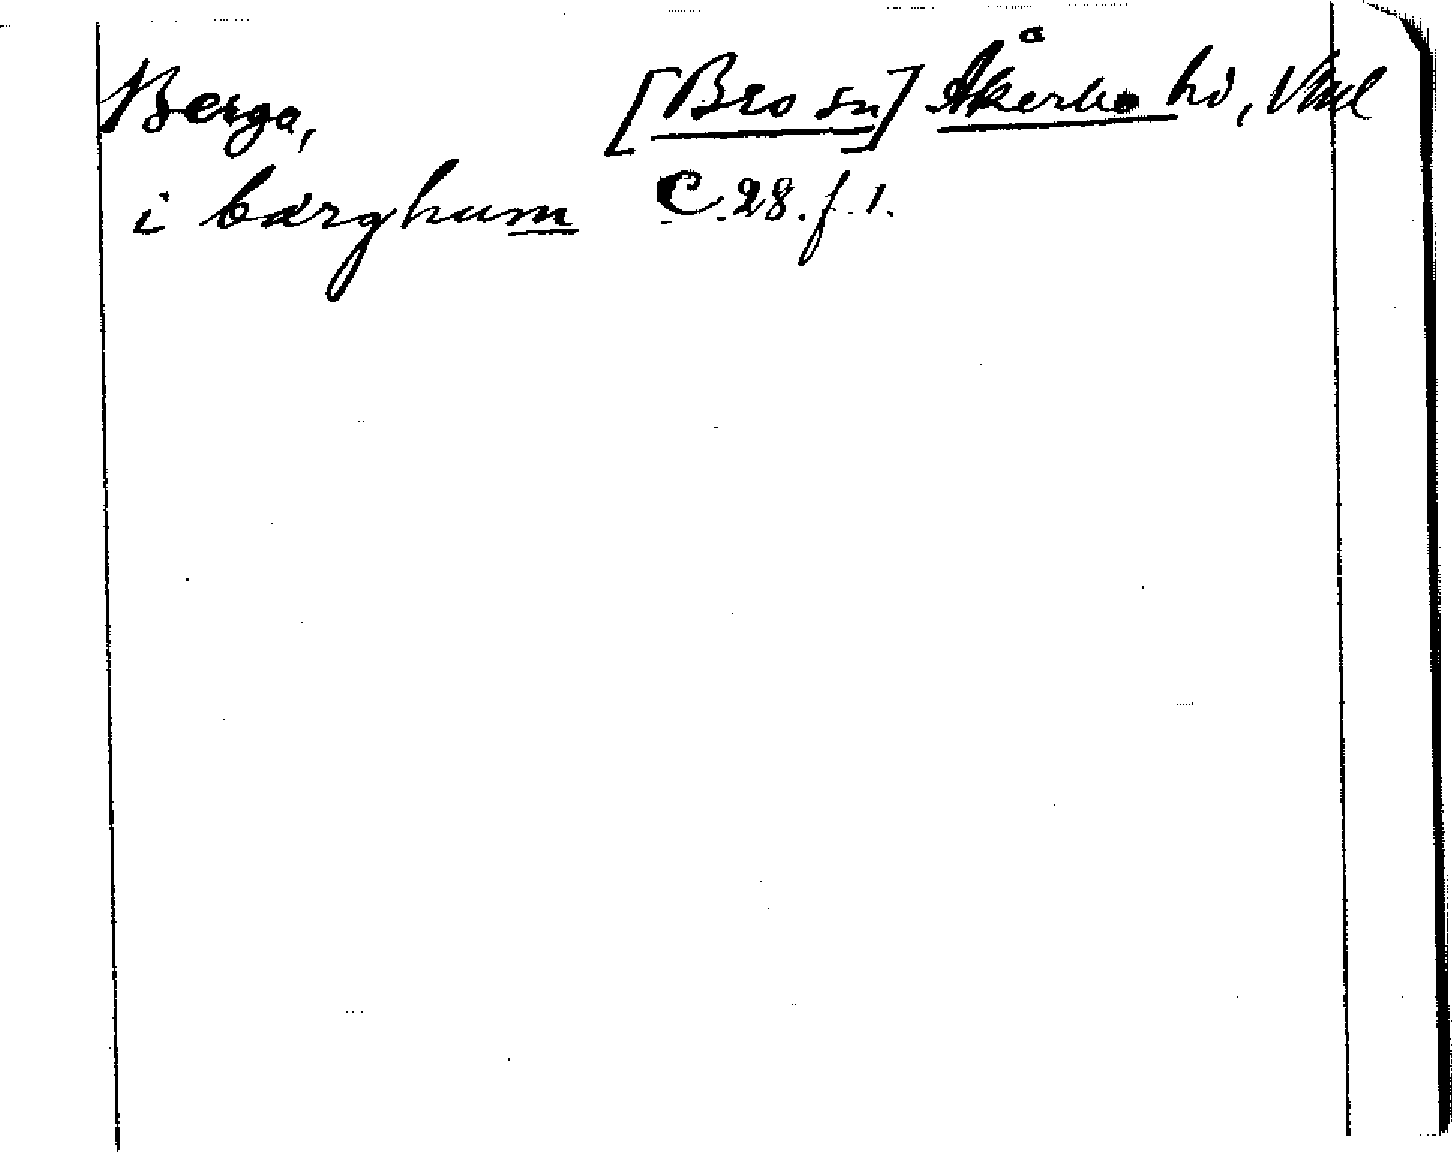 Berga, [Bro sn] Åkerbo hd, Vml
i bærghum C. 28. f. 1.